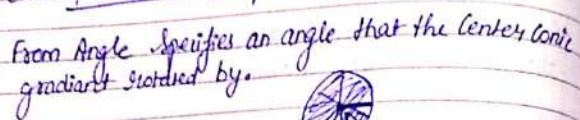 From Angle Specifies an angle that the Center Conic
gradiant rotated by.